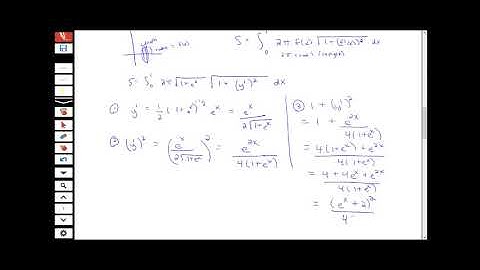 S = ∫₀¹ 2π f(x) √(1+(f'(x))²) dx
S = ∫₀¹ 2π √(1+eˣ) √(1+(y')²) dx
① y' = 1/2 (1+eˣ)^(-1/2) eˣ = eˣ / (2√(1+eˣ))
② (y')² = (eˣ / (2√(1+eˣ)))² = e²ˣ / (4(1+eˣ))
③ 1 + (y')²
= 1 + e²ˣ / (4(1+eˣ))
= (4(1+eˣ) + e²ˣ) / (4(1+eˣ))
= (4 + 4eˣ + e²ˣ) / (4(1+eˣ))
= (eˣ + 2)² / 4